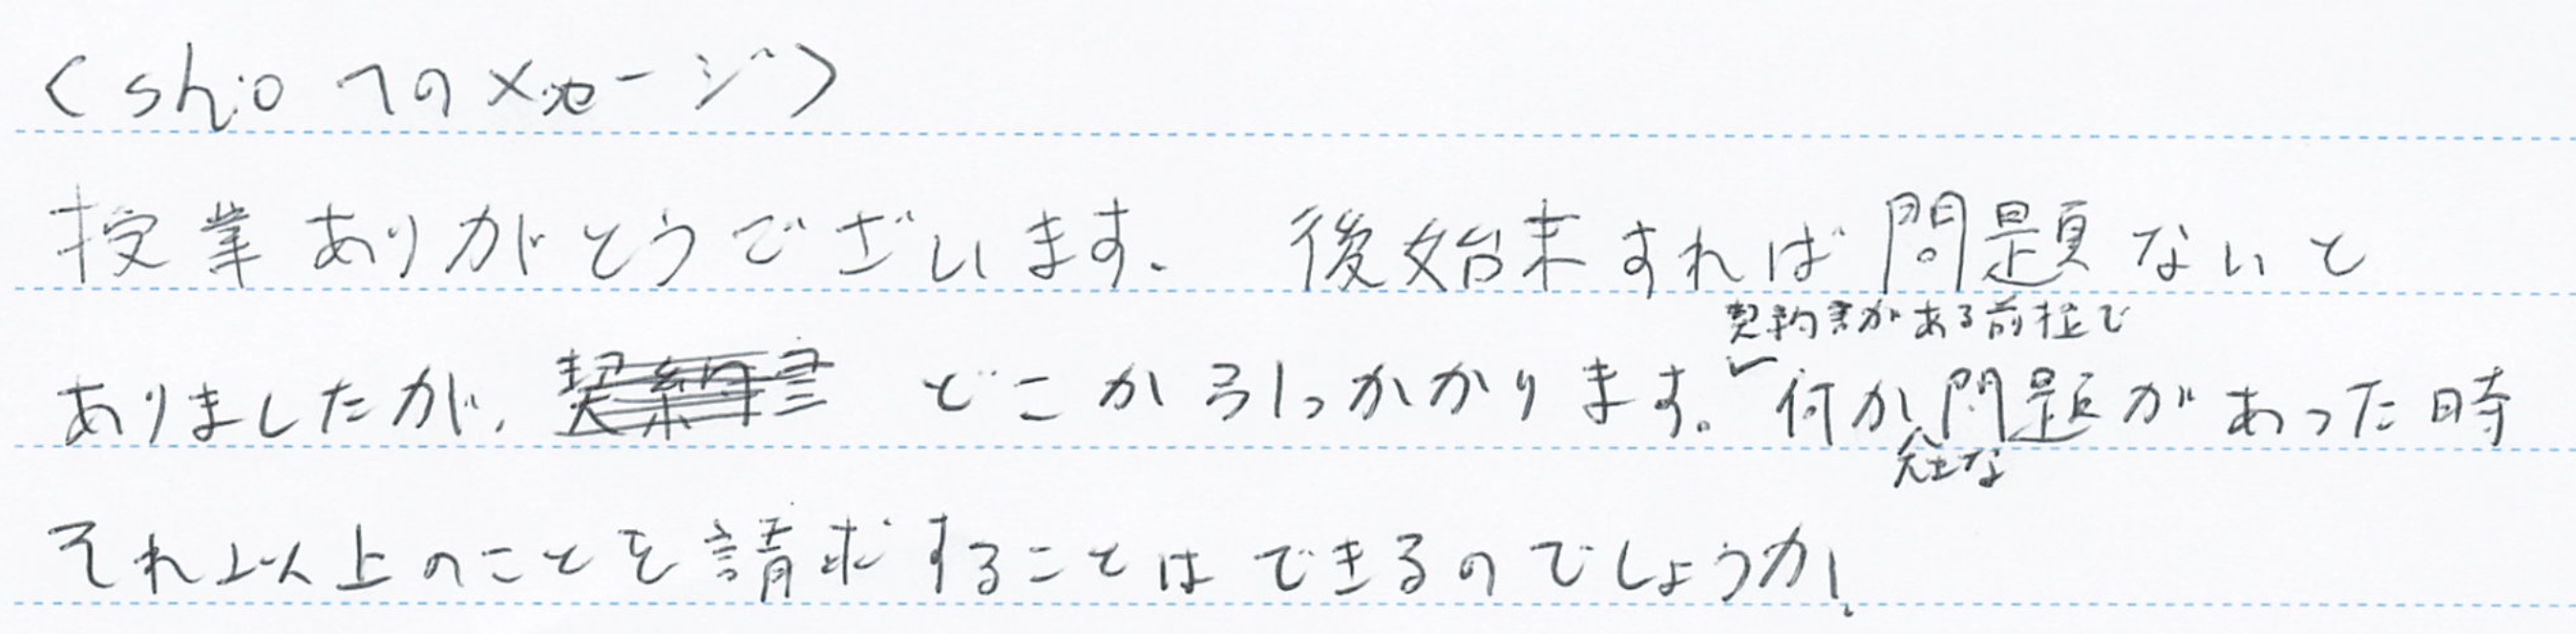 〈shioへのメッセージ〉
授業ありがとうございます。 後始末すれば問題ないと
契約書がある前提で
ありましたが、 どこか引っかかります。何か問題があった時
大きな
それ以上のことを請求することはできるのでしょうか。